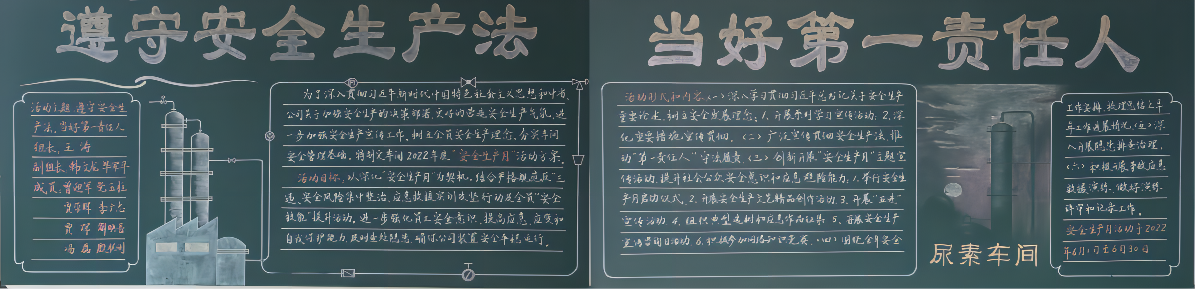 遵守安全生产法
当好第一责任人
活动主题:遵守安全生
产法,当好第一责任人
组长:王涛
副组长:
成员:
为了深入贯彻习近平新时代中国特色社会主义思想和中省、
公司关于加强安全生产的决策部署,
一步加强安全生产宣传工作,树立企员安全生产理念,夯实车间
安全管理基础,特制定车间2022年度“安全生产月”活动方案。
活动目标:以深化“安全生产月”为契机,结合
安全风险集中整治、应急救援实训
技能”提升活动,进一步强化员工安全意识、提高应急、应变和
自我防护能力,及时查处隐患,确保公司装置安全平稳运行。
活动形式和内容:(一)深入学习贯彻习近平总书记关于安全生产
重要论述,树立安全发展理念:1.开展系列学习宣传活动,2.深
化重要措施宣传贯彻。(二)广泛宣传贯彻安全生产法,推
动“第一责任人”守法履责,(三)创新开展“安全生产月”主题宣
传活动,提升社会公众安全意识和应急避险能力:1.举行安全生
产月启动仪式,2.开展安全生产文艺精品创作活动,3.开展“五进”
宣传活动,4.组织典型案例和应急作品征集,5.开展安全生产
宣传咨询日活动,6.积极参加网络知识竞赛。(四)围绕全年安全
工作安排,梳理总结上半
年工作进展情况,(五)深
入开展隐患排查治理,
(六)积极开展事故应急
救援演练,做好演练
评审和记录工作。
安全生产月活动于2022
年6月1日至6月30日
尿素车间